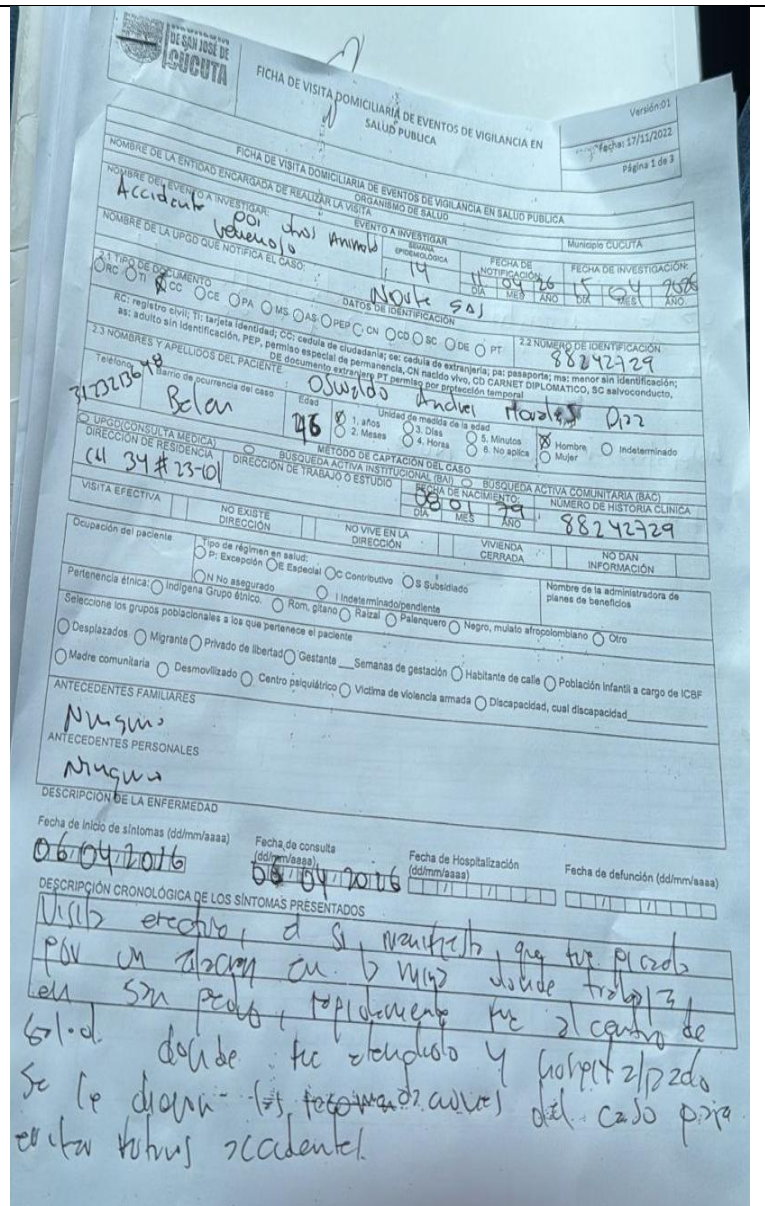 DE SAN JOSÉ DE
CÚCUTA
FICHA DE VISITA DOMICILIARIA DE EVENTOS DE VIGILANCIA EN
SALUD PUBLICA
Versión:01
Fecha: 17/11/2022
Página 1 de 3
FICHA DE VISITA DOMICILIARIA DE EVENTOS DE VIGILANCIA EN SALUD PUBLICA
ORGANISMO DE SALUD
NOMBRE DE LA ENTIDAD ENCARGADA DE REALIZAR LA VISITA
Municipio CUCUTA
EVENTO A INVESTIGAR
NOMBRE DEL EVENTO A INVESTIGAR:
Accidente por otros Animales
venenoso
SEMANA EPIDEMIOLÓGICA
14
FECHA DE NOTIFICACIÓN:
11 04 26
DIA MES AÑO
FECHA DE INVESTIGACIÓN:
15 04 2026
DIA MES AÑO
NOMBRE DE LA UPGD QUE NOTIFICA EL CASO:
Norte SAS
DATOS DE IDENTIFICACIÓN
2.1 TIPO DE DOCUMENTO
RC TI CC CE PA MS AS PEP CN CD SC DE PT
2.2 NUMERO DE IDENTIFICACIÓN
88242729
RC: registro civil; TI: tarjeta identidad; CC: cedula de ciudadania; ce: cedula de extranjeria; pa: pasaporte; ms: menor sin identificación;
as: adulto sin identificación, PEP, permiso especial de permanencia, CN nacido vivo, CD CARNET DIPLOMATICO, SC salvoconducto,
DE documento extranjero PT permiso por protección temporal
2.3 NOMBRES Y APELLIDOS DEL PACIENTE
Oswaldo Andres Morales Diaz
Teléfono
3123213648
Barrio de ocurrencia del caso
Belen
Edad
46
Unidad de medida de la edad
1. años 3. Dias 5. Minutos
2. Meses 4. Horas 6. No aplica
Hombre Indeterminado
Mujer
METODO DE CAPTACIÓN DEL CASO
UPGD(CONSULTA MEDICA) BÚSQUEDA ACTIVA INSTITUCIONAL (BAI) BÚSQUEDA ACTIVA COMUNITARIA (BAC)
DIRECCIÓN DE RESIDENCIA
34 # 23-01
DIRECCIÓN DE TRABAJO O ESTUDIO
FECHA DE NACIMIENTO:
08 01 79
DIA MES AÑO
NÚMERO DE HISTORIA CLINICA
88242729
VISITA EFECTIVA
NO EXISTE DIRECCIÓN
NO VIVE EN LA DIRECCIÓN
VIVIENDA CERRADA
NO DAN INFORMACIÓN
Ocupación del paciente
Tipo de régimen en salud:
P: Excepción E Especial C Contributivo S Subsidiado
N No asegurado I Indeterminado/pendiente
Nombre de la administradora de
planes de beneficios
Pertenencia étnica: Indígena Grupo étnico. Rom, gitano Raizal Palenquero Negro, mulato afrocolombiano Otro
Seleccione los grupos poblacionales a los que pertenece el paciente
Desplazados Migrante Privado de libertad Gestante ___Semanas de gestación Habitante de calle Población Infantil a cargo de ICBF
Madre comunitaria Desmovilizado Centro psiquiátrico Victima de violencia armada Discapacidad, cual discapacidad
ANTECEDENTES FAMILIARES
Ninguno
ANTECEDENTES PERSONALES
Ninguno
DESCRIPCIÓN DE LA ENFERMEDAD
Fecha de inicio de síntomas (dd/mm/aaaa)
06 04 2016
Fecha de consulta
(dd/mm/aaaa)
06 04 2016
Fecha de Hospitalización
(dd/mm/aaaa)
Fecha de defunción (dd/mm/aaaa)
DESCRIPCIÓN CRONOLÓGICA DE LOS SÍNTOMAS PRESENTADOS
Visita efectiva, el Sr, manifiesta, que fue picado
por un alacran en la mina donde trabaja,
en san pedro, rapidamente fue al centro de
salud. donde fue atendido y hospitalizado
se le dieron las recomendaciones del caso para
evitar futuros accidentes.